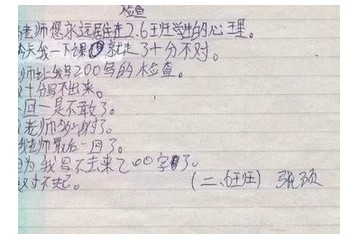 检查
老师您永远居住在2.6班学生的心里。
今天我一下课就走了十分不对。
师让我写200字的检查。
十分写不出来。
回一是不敢了。
老师 了。
老师最后一回了。
为我写不去来 00字了。
对不起。 (二、6班) 张